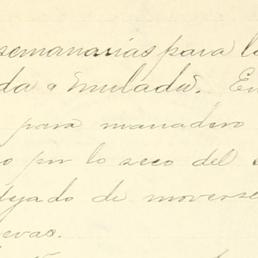 semanarias para l
da a mulada. En
para manadero
o por lo seco del
dejado de moverse
evas.